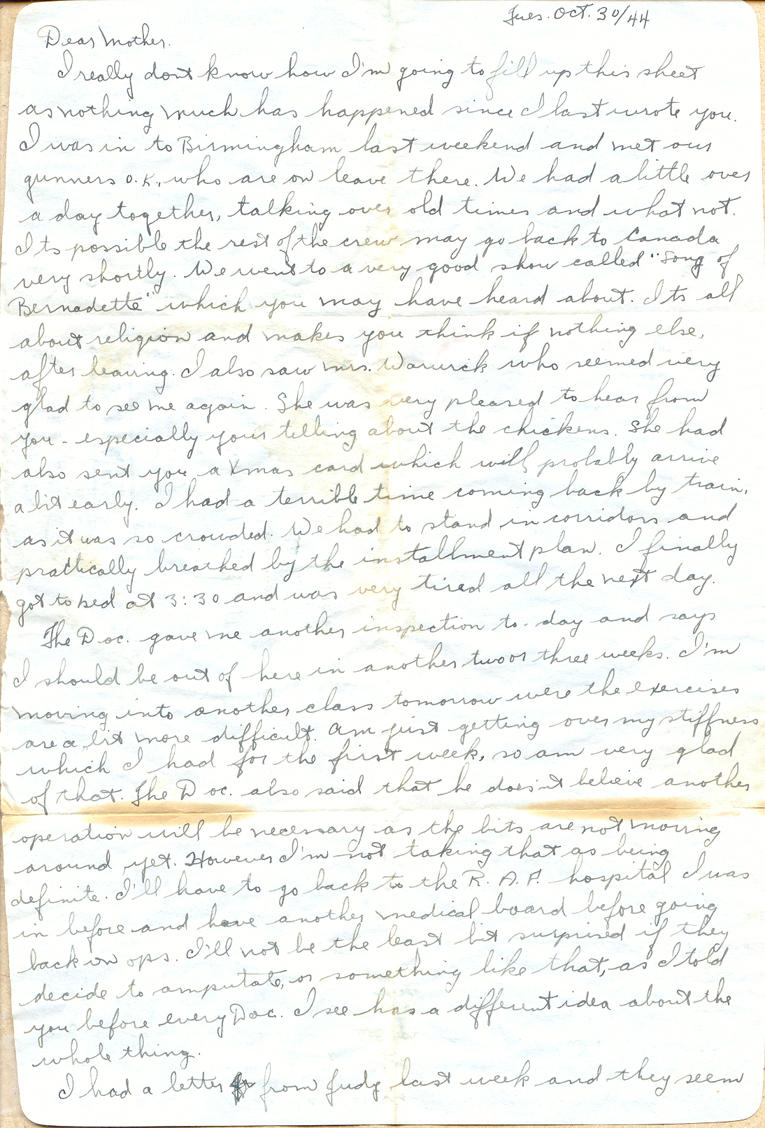 Tues. Oct. 30/44
Dear Mother.
I really dont know how I'm going to fill up this sheet
as nothing much has happened since I last wrote you.
I was in to Birmingham last weekend and met our
gunners O.K., who are on leave there. We had a little over
a day together, talking over old times and what not.
Its possible the rest of the crew may go back to Canada
very shortly. We went to a very good show called "Song of
Bernadette" which you may have heard about. Its all
about religion and makes you think if nothing else,
after leaving. I also saw Mrs. Warwick who seemed very
glad to see me again. She was very pleased to hear from
you - especially your telling about the chickens. She had
also sent you a Xmas card which will probably arrive
a bit early. I had a terrible time coming back by train,
as it was so crowded. We had to stand in corridors and
practically breathed by the installment plan. I finally
got to bed at 3:30 and was very tired all the next day.
The Doc. gave me another inspection to-day and says
I should be out of here in another two or three weeks. I'm
moving into another class tomorrow were the exercises
are a bit more difficult. Am just getting over my stiffness
which I had for the first week, so am very glad
of that. The Doc. also said that he doesn't believe another
operation will be necessary as the bits are not moving
around yet. However I'm not taking that as being
definite. I'll have to go back to the R.A.F. hospital I was
in before and have another medical board before going
back on ops. I'll not be the least bit surprised if they
decide to amputate, or something like that, as I told
you before every Doc. I see has a different idea about the
whole thing.
I had a letter from Judy last week and they seem